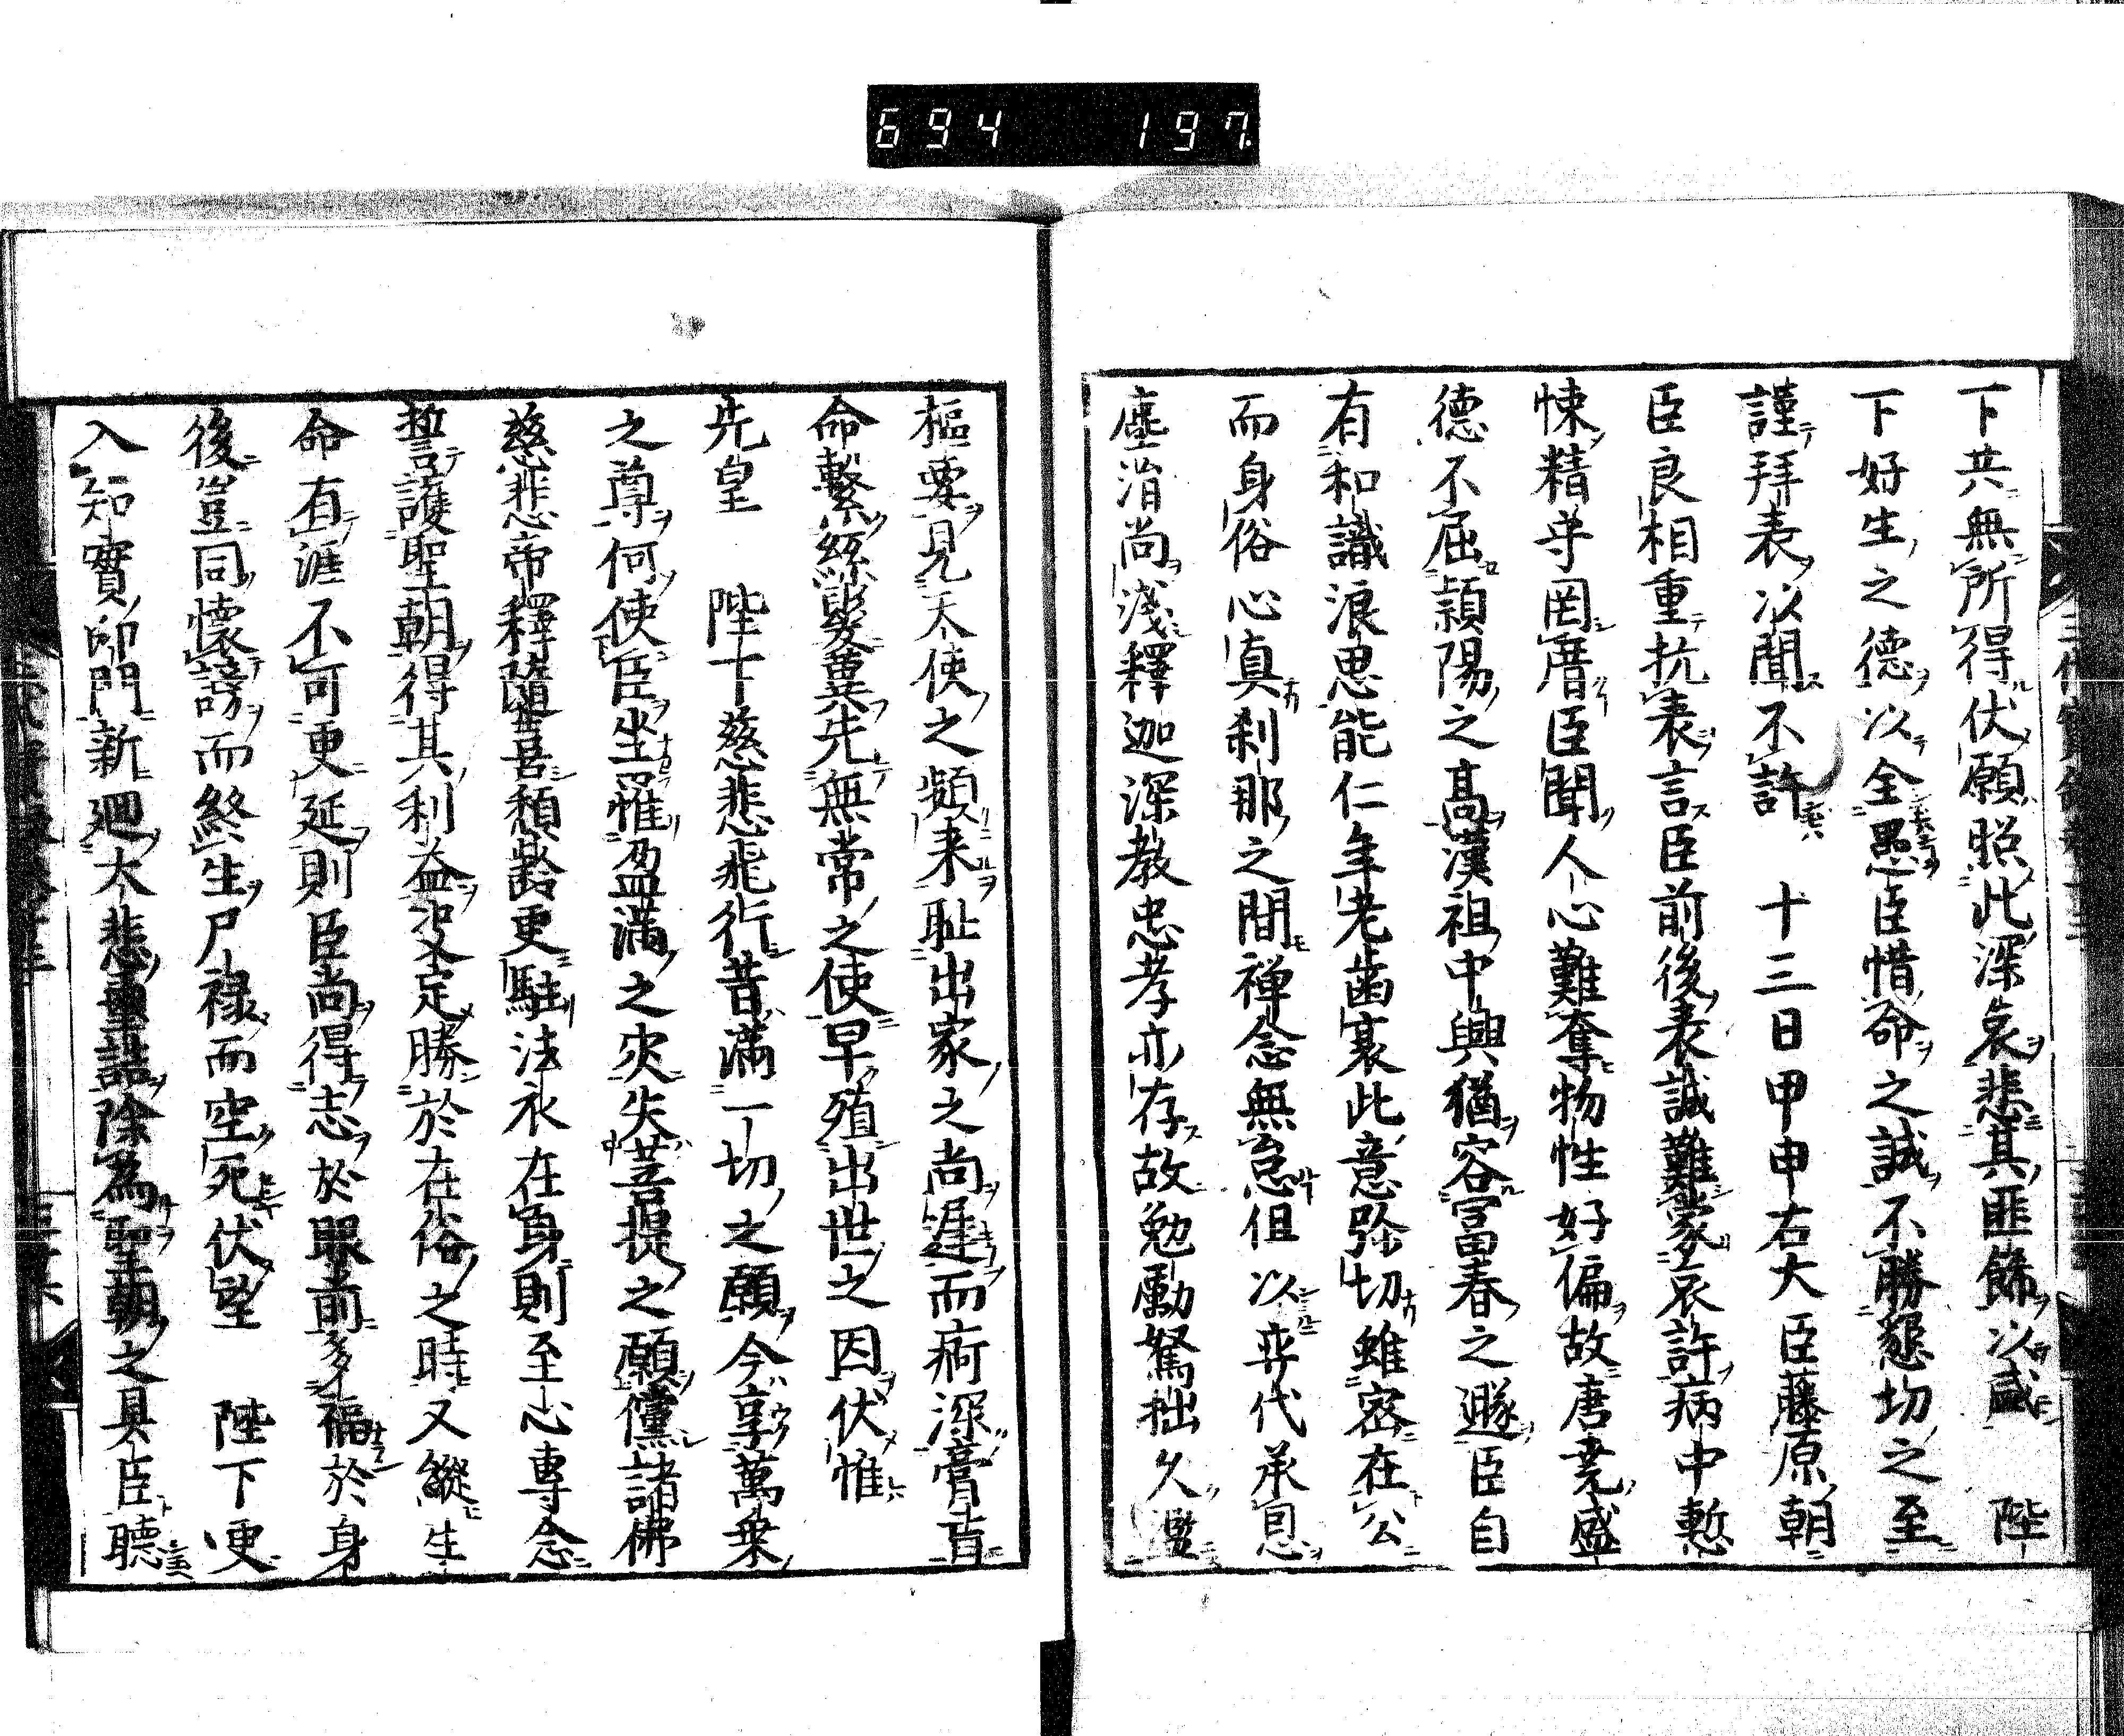 694 197
下共無所得伏願照此深哀悲其匪飾以感 陛
下好生之德以全愚臣惜命之誠不勝懇切之至
謹拜表以聞不許 十三日甲申右大臣藤原朝
臣良相重抗表言臣前後表誠難蒙哀許病中慙
悚精守罔厝臣聞人心難奪物性好偏故唐堯盛
德不屈頴陽之高漢祖中興猶容富春之遯臣自
有和識浪思能仁年老齒衰此意弥切雖密在公
而身俗心真刹那之間禅念無怠但以弈代承恩
塵涓尚淺釋迦深教忠孝亦存故勉勵駑拙久濫
樞要見天使之頻来耻出家之尚遲而痾深膏肓
命繋絲髪冀先無常之使早殖出世之因伏惟
先皇 陛下慈悲飛行昔滿一切之願今享萬乗
之尊何使臣坐罹盈滿之灾失菩提之願儻諸佛
慈悲帝釋隨喜頽齡更駐法永在身則至心專念
誓護聖朝得其利益必定勝於在俗之時又縱生
命有涯不可更延則臣尚得志於眼前多福於身
後豈同懷謗而終生尸禄而空死伏望 陛下更
入知實印門新廻大悲重詰除為聖朝之具臣聴